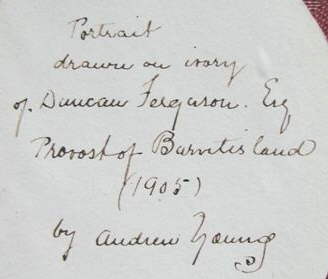 Portrait
drawn on ivory
of. Duncan Ferguson. Esq
Provost of Burntisland
(1905)
by Andrew Young